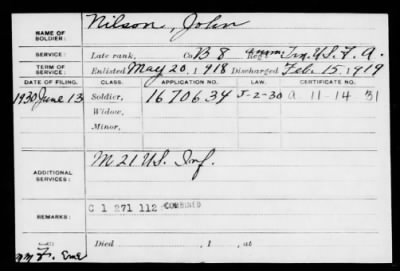 NAME OF SOLDIER: Nilson, John
SERVICE: Late rank, Co B 8 Amm. Trn. U.S. F. A.
TERM OF SERVICE: Enlisted May 20, 1918 Discharged Feb. 15, 1919
DATE OF FILING. CLASS. APPLICATION NO. CERTIFICATE NO.
1930 June 13 Soldier, 1670634 J-2-30 a 11-14 31
Widow,
Minor,
ADDITIONAL SERVICES: M 21 U.S. Inf.
REMARKS: C 1 271 112 COMBINED
Died , 1 , at